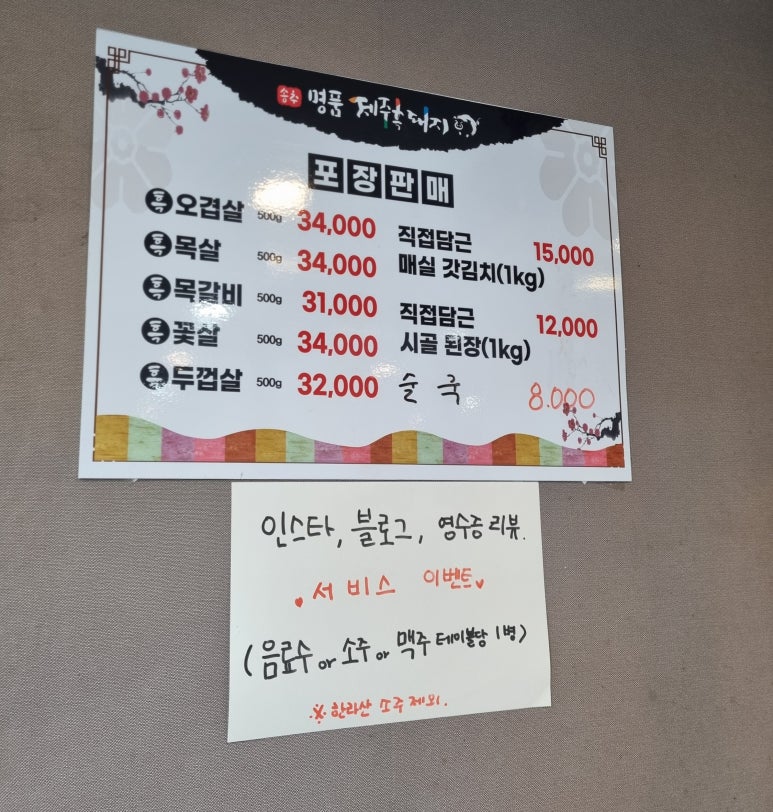 송추 명품 제주흑돼지
포장판매
흑 오겹살 500g 34,000
흑 목살 500g 34,000
흑 목갈비 500g 31,000
흑 꽃살 500g 34,000
흑 두껍살 500g 32,000
직접담근
매실 갓김치(1kg) 15,000
직접담근
시골 된장(1kg) 12,000
술국 8.000
인스타, 블로그, 영수증 리뷰.
♥ 서비스 이벤트 ♥
(음료수 or 소주 or 맥주 테이블당 1병)
※ 한라산 소주 제외.